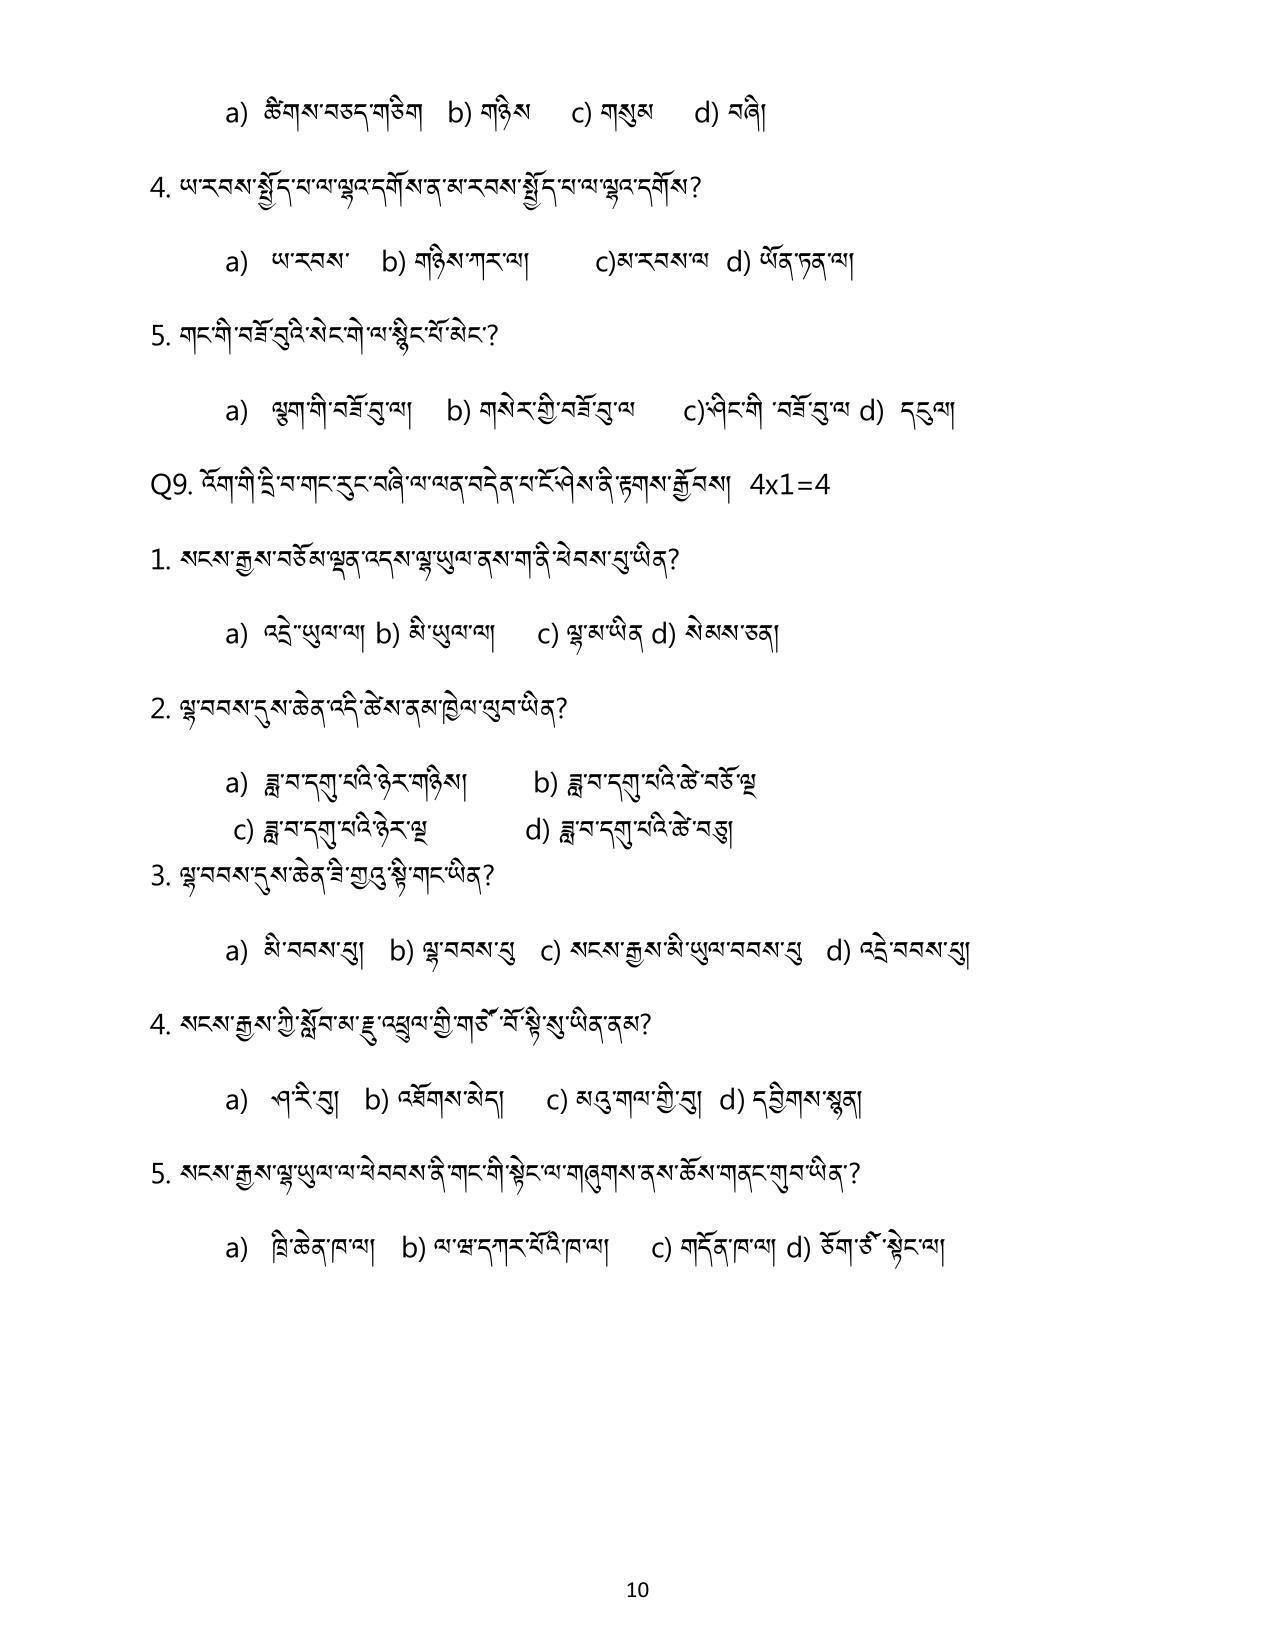 a) ཚིགས་བཅད་གཅིག b) གཉིས c) གསུམ d) བཞི།
4. ཡ་རབས་སྤྱོད་པ་ལ་ལྟའ་དགོས་ན་མ་རབས་སྤྱོད་པ་ལ་ལྟའ་དགོས?
a) ཡ་རབས་ b) གཉིས་ཀར་ལ། c)མ་རབས་ལ d) ཡོན་ཏན་ལ།
5. གང་གི་བཟོ་བུའི་སེང་གེ་ལ་སྙིང་པོ་མེང་?
a) ལྕག་གི་བཟོ་བུ་ལ། b) གསེར་གྱི་བཟོ་བུ་ལ c)་ཤིང་གི་བཟོ་བུ་ལ d) དངུལ།
Q9. འོག་གི་དྲི་བ་གང་རུང་བཞི་ལ་ལན་བདེན་པ་ངོ་ཤེས་ནི་རྟགས་རྒྱོབས། 4x1=4
1. སངས་རྒྱས་བཅོམ་ལྡན་འདས་ལྷ་ཡུལ་ནས་ག་ནི་ཕེབས་པུ་ཡིན?
a) འདྲེ་ཡུལ་ལ། b) མི་ཡུལ་ལ། c) ལྷ་མ་ཡིན d) སེམས་ཅན།
2. ལྷ་བབས་དུས་ཆེན་འདི་ཚེས་ནམ་ཁྱེལ་ལུབ་ཡིན?
a) ཟླ་བ་དགུ་པའི་ཉེར་གཉིས། b) ཟླ་བ་དགུ་པའི་ཚེ་བཅོ་ལྔ
c) ཟླ་བ་དགུ་པའི་ཉེར་ལྔ d) ཟླ་བ་དགུ་པའི་ཚེ་བཅུ།
3. ལྷ་བབས་དུས་ཆེན་ཟི་གྱའུ་སྟི་གང་ཡིན?
a) མི་བབས་པུ། b) ལྷ་བབས་པུ c) སངས་རྒྱས་མི་ཡུལ་བབས་པུ d) འདྲེ་བབས་པུ།
4. སངས་རྒྱས་ཀྱི་སློབ་མ་རྫུ་འཕྲུལ་གྱི་གཙོ་བོ་སྟི་སུ་ཡིན་ནམ?
a) ཤ་རི་བུ། b) འཐོགས་མེད། c) མའུ་གལ་གྱི་བུ། d) དབྱིགས་སྙན།
5. སངས་རྒྱས་ལྷ་ཡུལ་ལ་ཕེབབས་ནི་གང་གི་སྟེང་ལ་གཞུགས་ནས་ཆོས་གནང་གུབ་ཡིན་?
a) ཁྲི་ཆེན་ཁ་ལ། b) ལ་ཝ་དཀར་པོའི་ཁ་ལ། c) གདོན་ཁ་ལ། d) ཅོག་ཙེ་སྟེང་ལ།
10